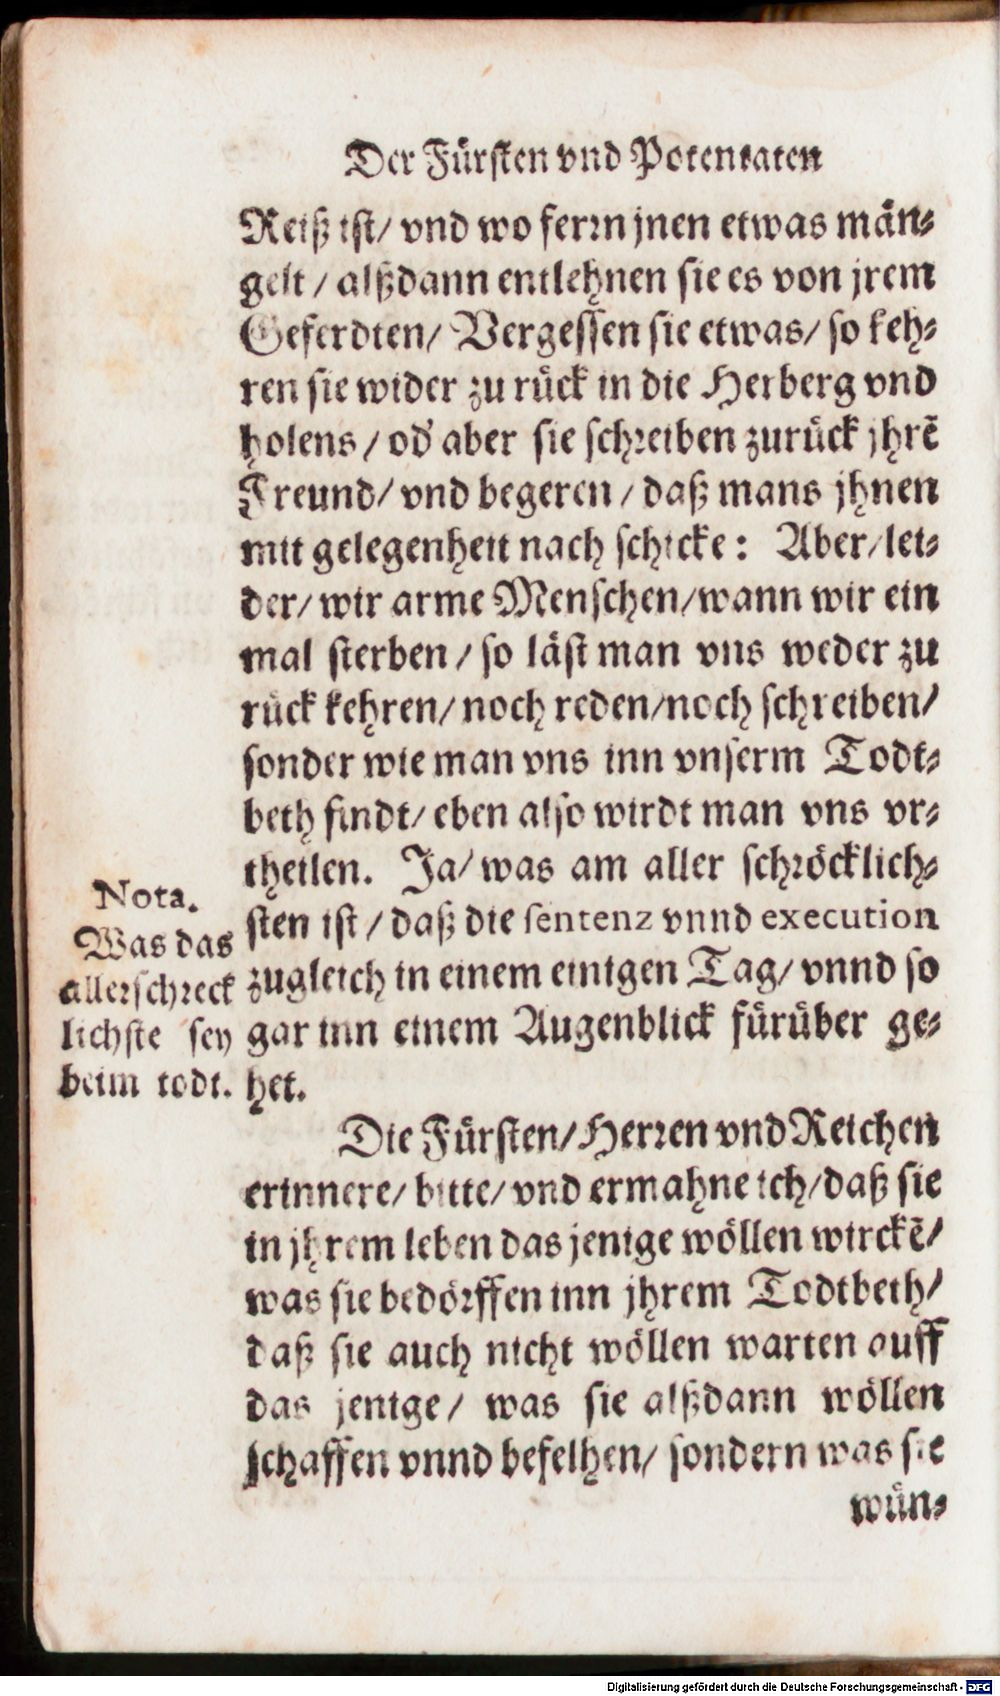 Der Fürsten vnd Potentaten
Reiß ist/ vnd wo ferrn jnen etwas män⸗
gelt / alßdann entlehnen sie es von jrem
Geferdten/ Vergessen sie etwas/ so keh⸗
ren sie wider zu rück in die Herberg vnd
holens / od' aber sie schreiben zurück jhrẽ
Freund/ vnd begeren / daß mans jhnen
mit gelegenheit nach schicke: Aber/ lei⸗
der/ wir arme Menschen/ wann wir ein
mal sterben / so läst man vns weder zu
rück kehren/ noch reden/ noch schreiben/
sonder wie man vns inn vnserm Todt⸗
beth findt/ eben also wirdt man vns vr⸗
theilen. Ja/ was am aller schröcklich⸗
sten ist / daß die sentenz vnnd execution
zugleich in einem einigen Tag/ vnnd so
gar inn einem Augenblick fürüber ge⸗
het.
Nota.
Was das
allerschreck
lichste sey
beim todt.
Die Fürsten/ Herren vnd Reichen
erinnere/ bitte/ vnd ermahne ich/ daß sie
in jhrem leben das jenige wöllen wirckẽ/
was sie bedörffen inn jhrem Todtbeth/
daß sie auch nicht wöllen warten auff
das jenige/ was sie alßdann wöllen
schaffen vnnd befelhen/ sondern was sie
wün⸗
Digitalisierung gefördert durch die Deutsche Forschungsgemeinschaft - DFG